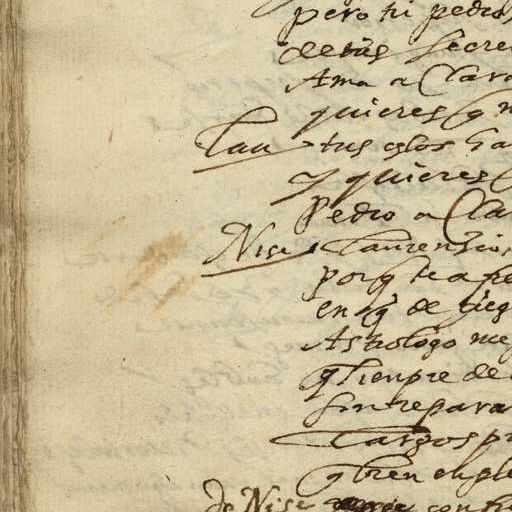 pero tu pedro
de tus secre
Ama a Clara
quieres q
Lau tus celos ha
y quieres
Pedro a Cla
Nise Laurensio
porq te a pe
en q de
Astrologo me
q siempre de
sin repara
Largos pr
q bien
de Nise con